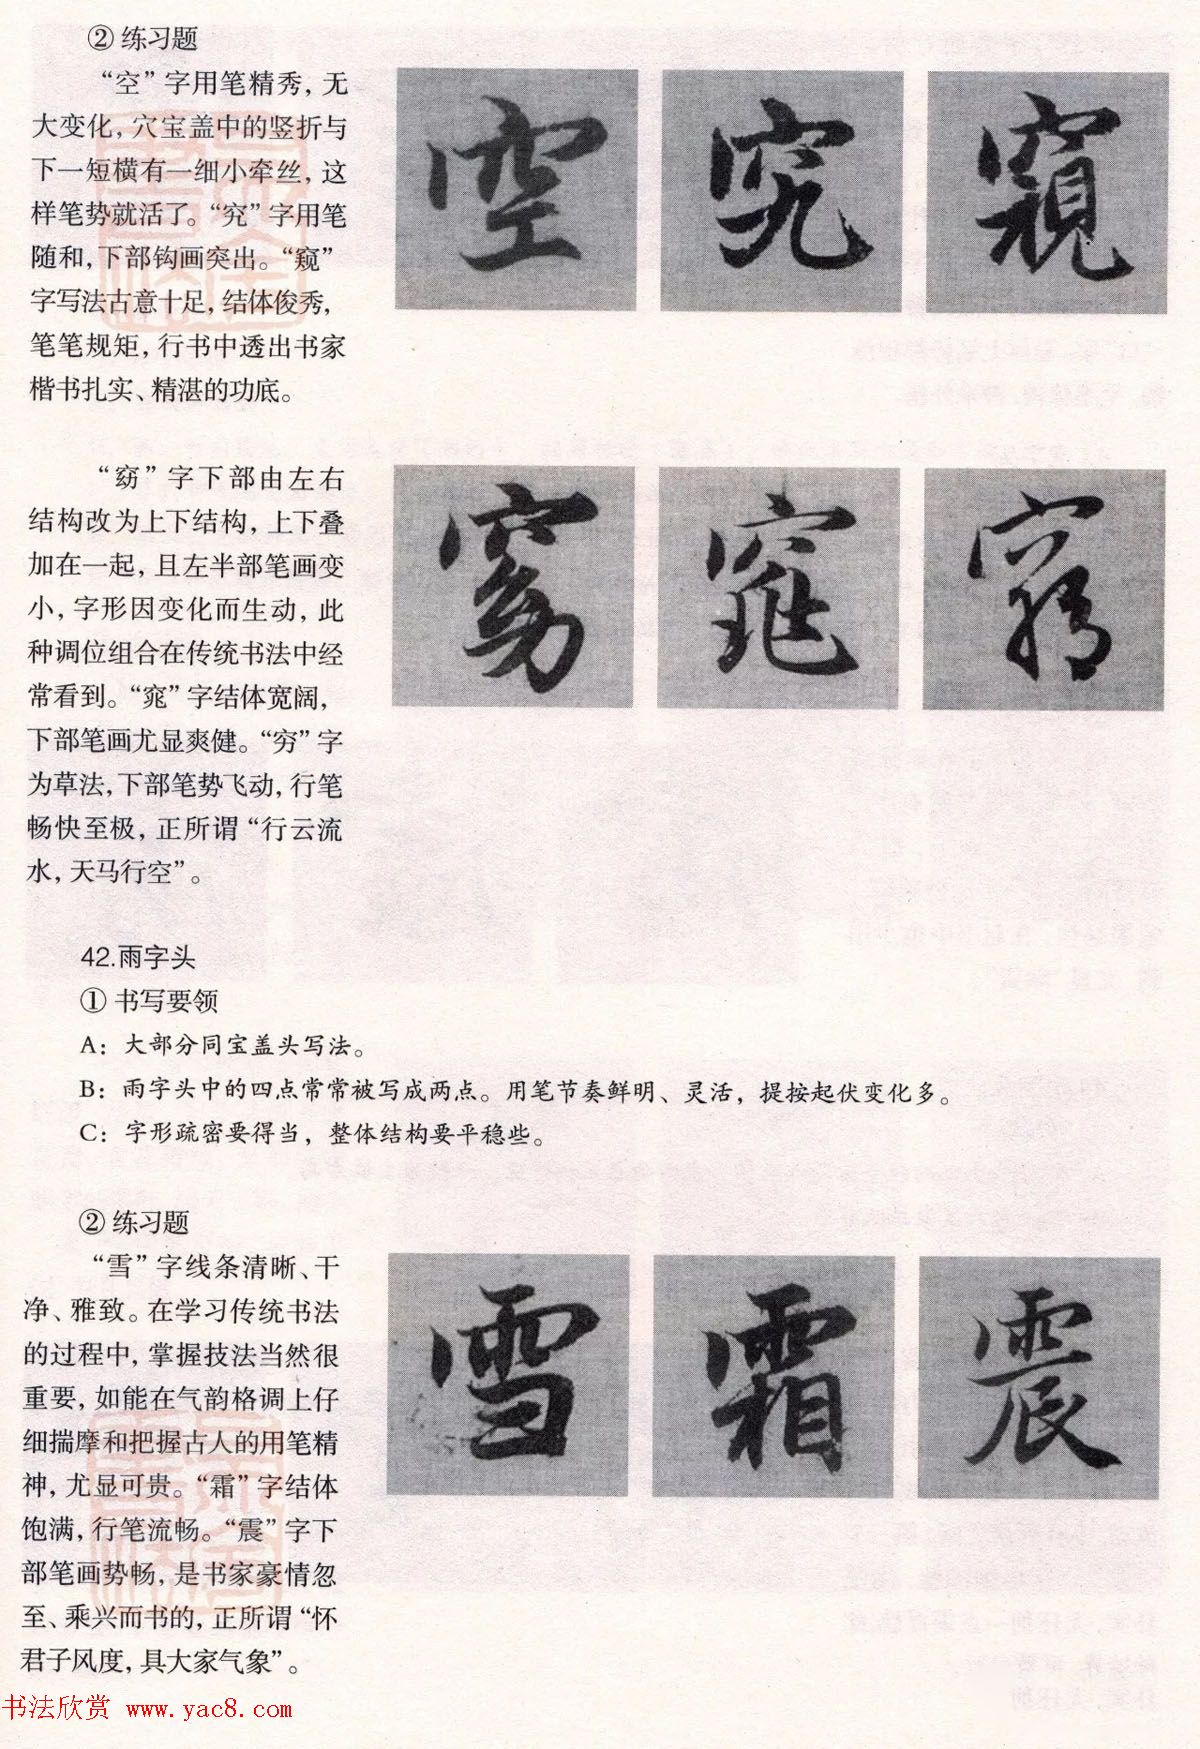 ② 练习题
“空”字用笔精秀，无
大变化，穴宝盖中的竖折与
下一短横有一细小牵丝，这
样笔势就活了。“究”字用笔
随和，下部钩画突出。“窥”
字写法古意十足，结体俊秀，
笔笔规矩，行书中透出书家
楷书扎实、精湛的功底。
空 究 窥
“窈”字下部由左右
结构改为上下结构，上下叠
加在一起，且左半部笔画变
小，字形因变化而生动，此
种调位组合在传统书法中经
常看到。“窕”字结体宽阔，
下部笔画尤显爽健。“穷”字
为草法，下部笔势飞动，行笔
畅快至极，正所谓“行云流
水，天马行空”。
窈 窕 窮
42.雨字头
① 书写要领
A：大部分同宝盖头写法。
B：雨字头中的四点常常被写成两点。用笔节奏鲜明、灵活，提按起伏变化多。
C：字形疏密要得当，整体结构要平稳些。
② 练习题
“雪”字线条清晰、干
净、雅致。在学习传统书法
的过程中，掌握技法当然很
重要，如能在气韵格调上仔
细揣摩和把握古人的用笔精
神，尤显可贵。“霜”字结体
饱满，行笔流畅。“震”字下
部笔画势畅，是书家豪情忽
至、乘兴而书的，正所谓“怀
君子风度，具大家气象”。
雪 霜 震
书法欣赏 www.yac8.com